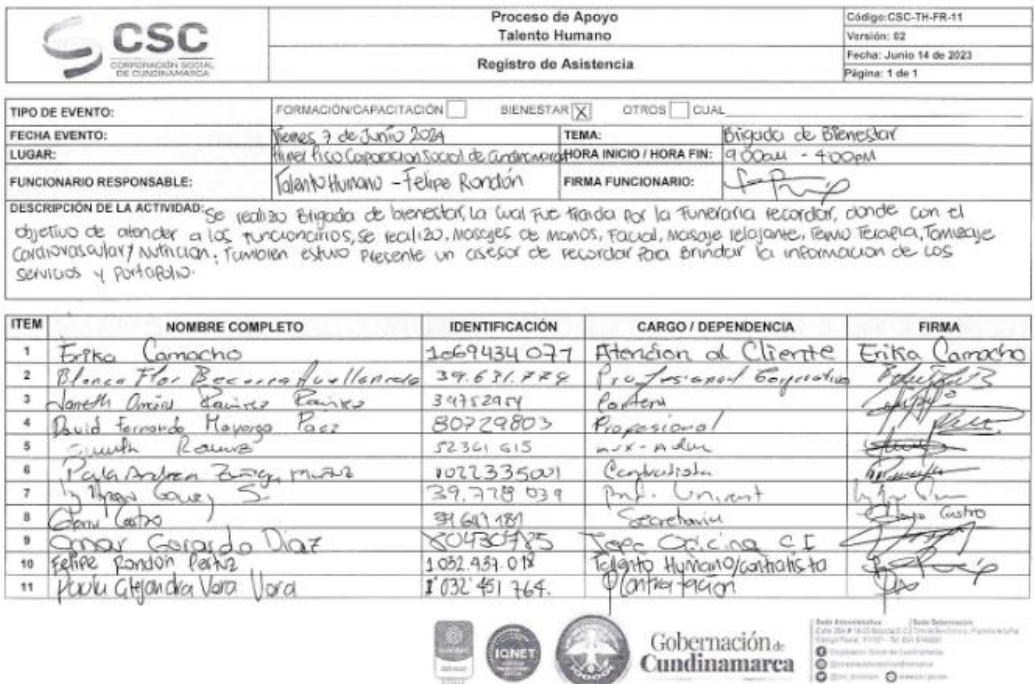 CSC
CORPORACIÓN SOCIAL
DE CUNDINAMARCA
Proceso de Apoyo
Talento Humano
Registro de Asistencia
Código:CSC-TH-FR-11
Versión: 02
Fecha: Junio 14 de 2023
Página: 1 de 1
TIPO DE EVENTO: FORMACIÓN/CAPACITACIÓN BIENESTAR X OTROS CUAL
FECHA EVENTO: Viernes 7 de Junio 2024 TEMA: Brigada de Bienestar
LUGAR: Primer Piso Corporacion Social de Cundinamarca HORA INICIO / HORA FIN: 9:00am - 4:00pm
FUNCIONARIO RESPONSABLE: Talento Humano - Felipe Rondón FIRMA FUNCIONARIO:
DESCRIPCIÓN DE LA ACTIVIDAD: Se realizo Brigada de bienestar, La cual fue traida por la Funeraria recordar, donde con el
objetivo de atender a los funcionarios, se realizo, masajes de manos, Facial, Masaje relajante, Termo Terapia, Tamizaje
Cardiovascular y Nutricion, Tambien estuvo Presente un asesor de recordar Para Brindar la informacion de Los
servicios y Portafolio.
ITEM NOMBRE COMPLETO IDENTIFICACIÓN CARGO / DEPENDENCIA FIRMA
1 Erika Camacho 1069434077 Atencion al Cliente Erika Camacho
2 Blanca Flor Becerra 39.631.774 Profesional
3 Janeth Ramirez 39752954
4 David Fernando Mayorga Paez 80729803 Profesional
5 52361 615 aux-Adm
6 Paula Andrea Zuñiga 1022335001 Contratista
7 39.778 039 Prof. Univers
8 Castro Secretaria Castro
9 Omar Gerardo Diaz 80430785 Jefe Oficina C I
10 Felipe Rondón Pertuz 1.032.437.018 Talento Humano/contratista
11 Paula Alejandra Vera Vera 1'032'451 764. Contratacion
IQNET
Gobernación de
Cundinamarca